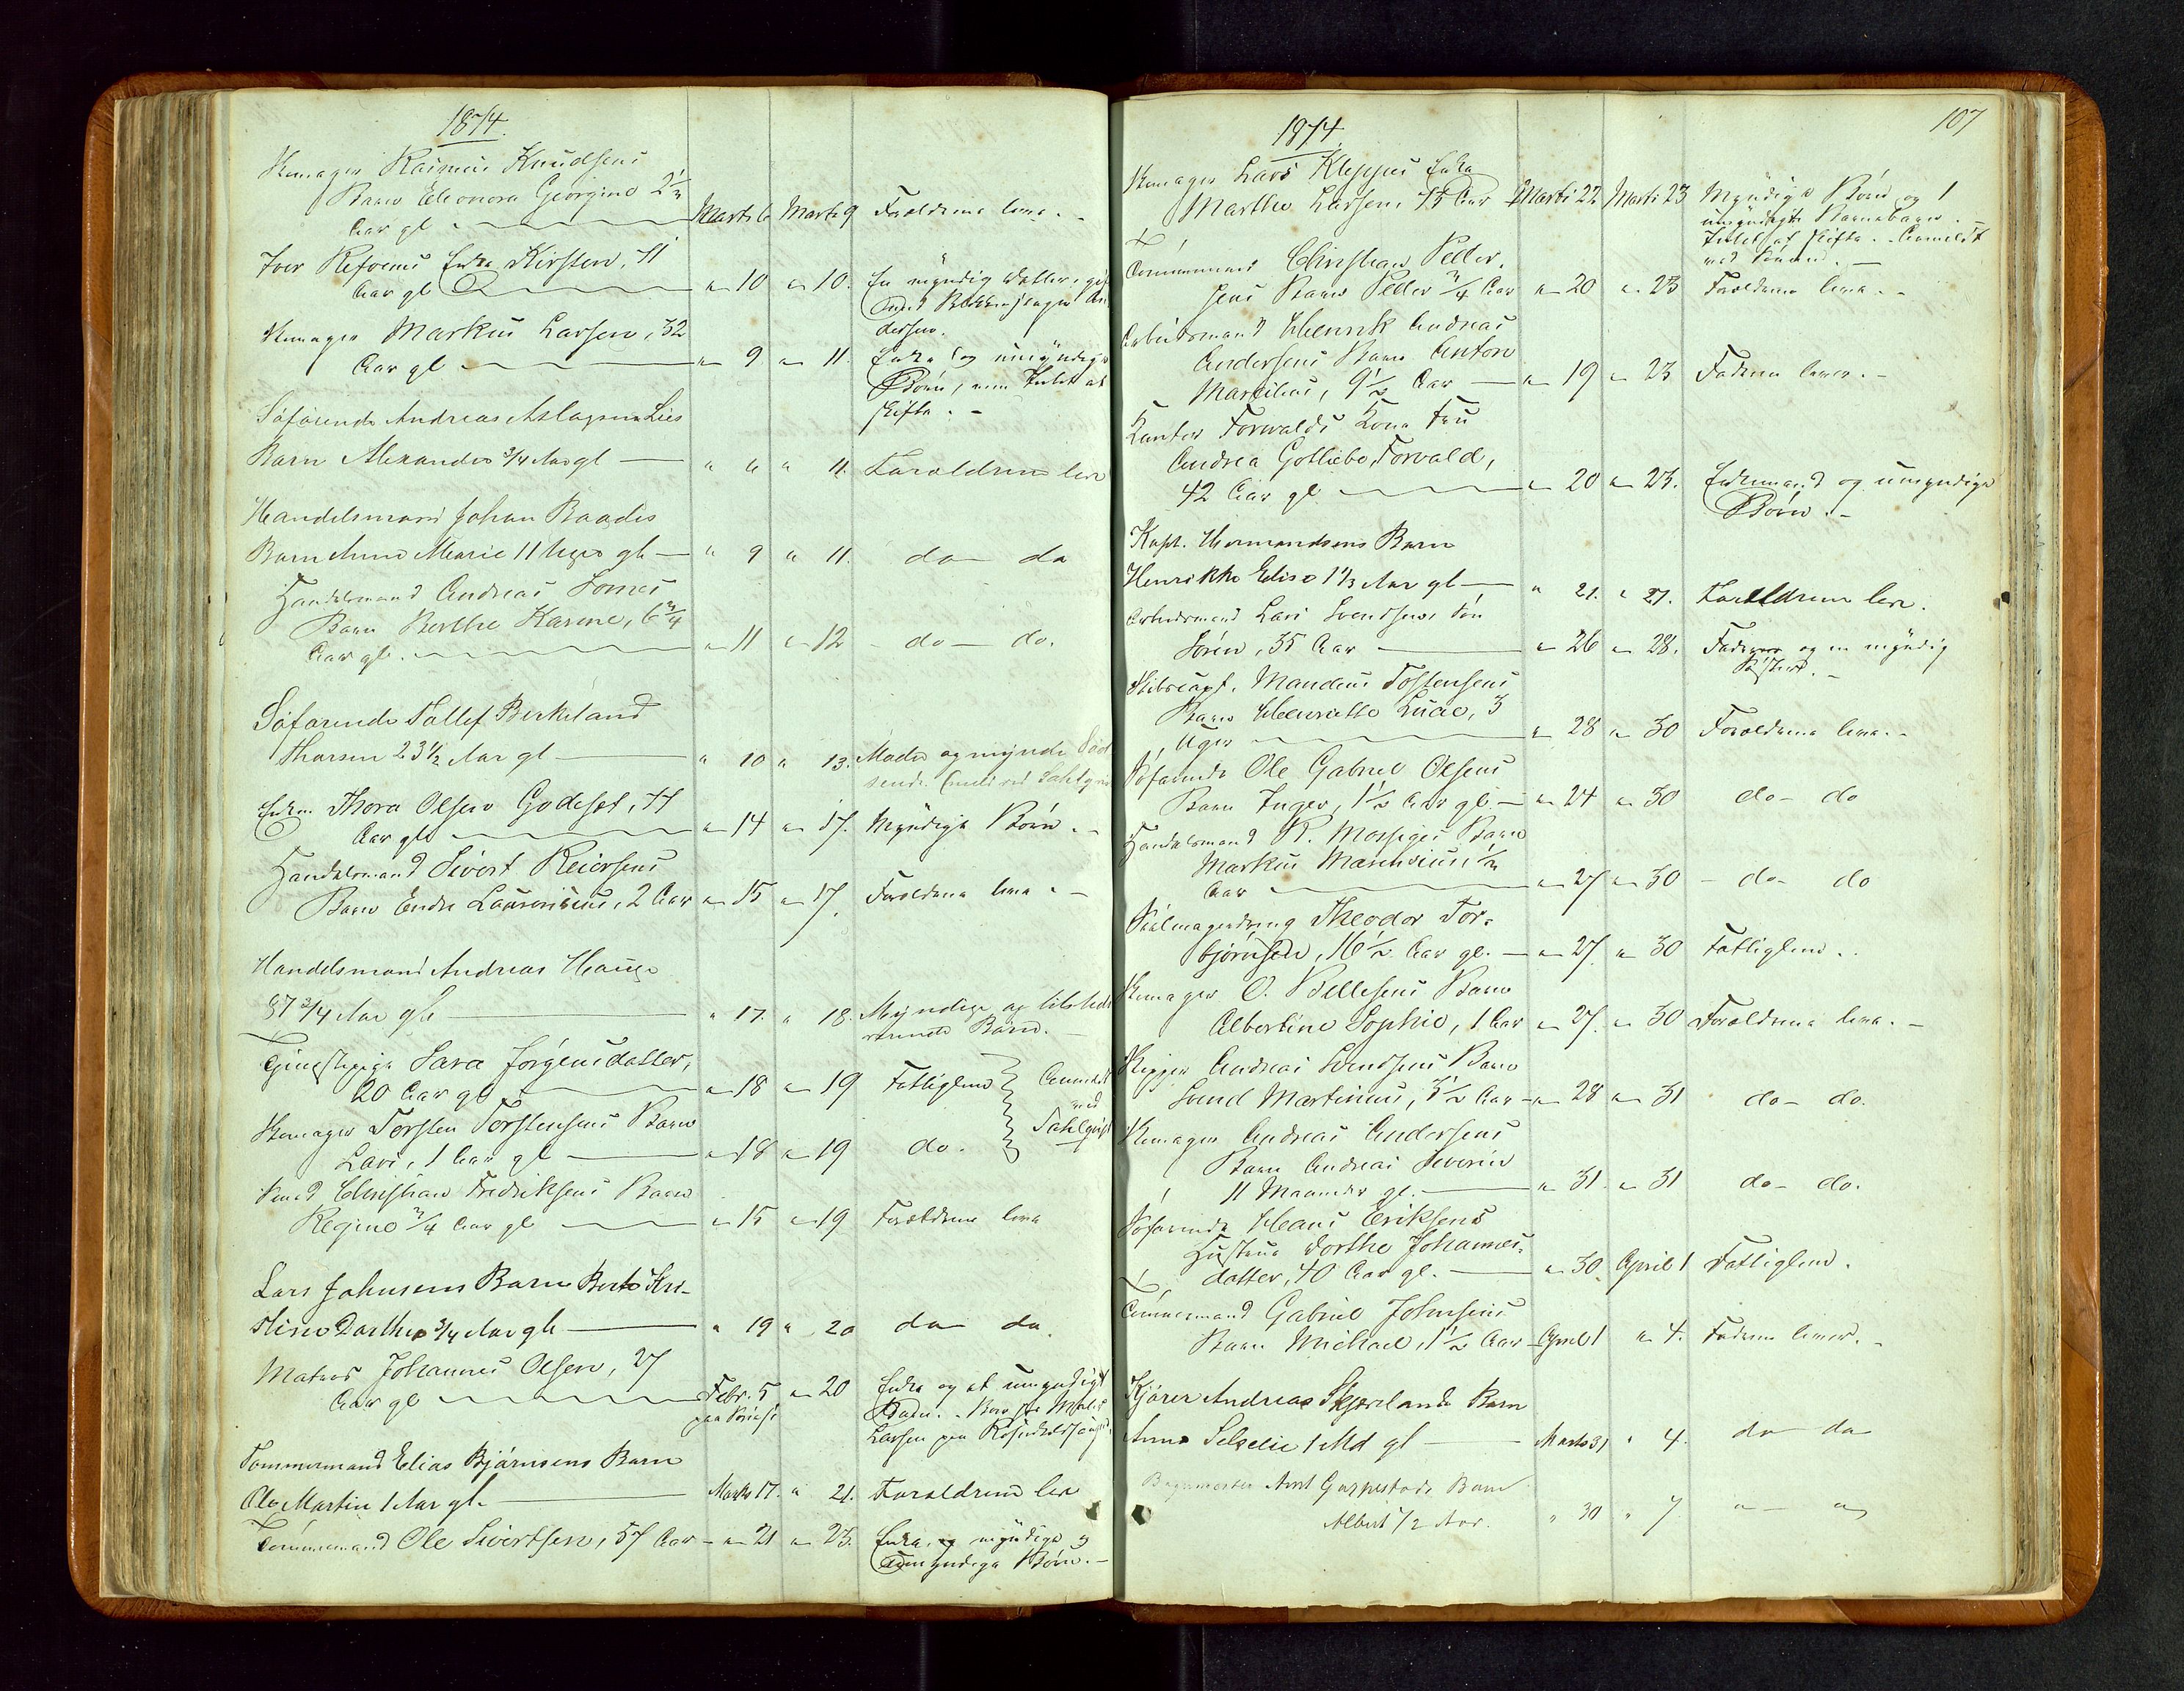 1874.
Skomager Rasmus Knudsens
Barn Eleonora Georgine 2½
Aar gl Marts 6 Marts 9 Forældrene leve.
Iver Refsens Enke Kirsten, 71
Aar gl " 10 " 10. En myndig Datter, gift
med Blikkenslager An-
dersen.
Skomager Markus Larsen, 32
Aar gl " 9 " 11. Enke og umyndige
Børn,
skifte.
Søfarende Andreas Aslagsen Lies
Barn Alexander 3/4 Aar gl " 6 " 11. Forældrene leve
Handelsmand Johan Baades
Barn Anne Marie 11 Uger gl " 9 " 11. do do
Handelsmand Andreas Somes
Barn Berthe Karine, 6 3/4
Aar gl. " 11 " 12 do do.
Søfarende Tollef Birkeland
Thorsen 23½ Aar gl " 10 " 13. Moder og myndig
Enke Thora Olsen Godeset, 77
Aar gl " 14 " 17. Myndige Børn.
Handelsmand Sivert Reiersens
Barn Endre Laurentius, 2 Aar " 15 " 17. Forældrene leve.
Handelsmand Andreas Hauge
87 3/4 Aar gl " 17. " 18. Myndige og tilstede
værende Børn.
Tjenestepige Sara Jørgensdatter,
20 Aar gl " 18 " 19 Fattiglem Anmeldt
ved
Skomager Torsten Torstensens Barn
Lars, 1 Aar gl " 18 " 19 do. Tahlqvist
Smed Christian Fredriksens Barn
Regine 3/4 Aar gl " 15 " 19 Forældrene leve
Lars Johnsens Barn Berte Kri-
stine Dorthea 3/4 Aar gl " 19 " 20 do do.
Matros Johannes Olsen, 27
Aar gl Febr. 5 " 20 Enke og et umyndigt
paa Barn. Bor
Larsen paa
Tømmermand Elias Bjørnsens Barn
Ole Martin 1 Aar gl. Marts 17. " 21. Forældrene leve
Tømmermand Ole Sivertsen, 57 Aar " 21 " 23. Enke, og myndige og
umyndige Børn.
107
1874
Skomager Lars Kleppes Enke
Marthe Larsen, 75 Aar Marts 22 Marts 23 Myndige Børn og 1
umyndigt Barnebarn.
skifte. Anmeldt
ved
Tømmermand Christian Peder-
sens Barn Peder 3/4 Aar " 20 " 23 Forældrene leve.
Arbeidsmand Henrik Andreas
Andersens Barn Anton
Marselius, 9½ Aar " 19 " 23 Faderen lever.
Kantor Forwalds Kone Fru
Andrea Gotliebe Forvald,
42 Aar gl " 20 " 23. Enkemand og umyndige
Børn.
Kapt. Hermandsens Barn
Henrikke Elise 1 1/3 Aar gl " 21. " 27. Forældrene leve.
Arbeidsmand Lars Svendsens Søn
Søren, 35 Aar " 26 " 28. Faderen og en myndig
Søster.
Skibscapt. Mandius Tostensens
Barn Henriette Lucie, 3
Uger " 28 " 30 Forældrene leve.
Søfarende Ole Gabriel Olsens
Barn Inger, 1½ Aar gl. " 24 " 30 do do
Handelsmand R. Mossiges Barn
Markus Manthius, ½
Aar " 27 " 30 do do
Seilmagerdreng Theodor Tor-
bjørnsen, 16½ Aar gl. " 27. " 30 Fattiglem.
Skomager O. Pellesens Barn
Albertine Sophie, 1 Aar " 27. " 30 Forældrene leve.
Skipper Andreas Svendsens Barn
Svend Martinius, 3½ Aar " 28 " 31 do do.
Skomager Andreas Andersens
Barn Andreas Severin
11 Maaneder gl. " 31. " 31 do do.
Søfarende Hans Eriksens
Hustrue Dorthe Johannes-
datter, 40 Aar gl. " 30. April 1 Fattiglem.
Tømmermand Gabriel Johnsens
Barn Michael, 1½ Aar April 1 " 4. Faderen lever.
Kjører Andreas Skjævelands Barn
Anne Selselie 1 Md gl Marts 31 " 4. do do
Bagermester Arnt Garpestads Barn
Albert 1/2 Aar. " 30 " 7 " "